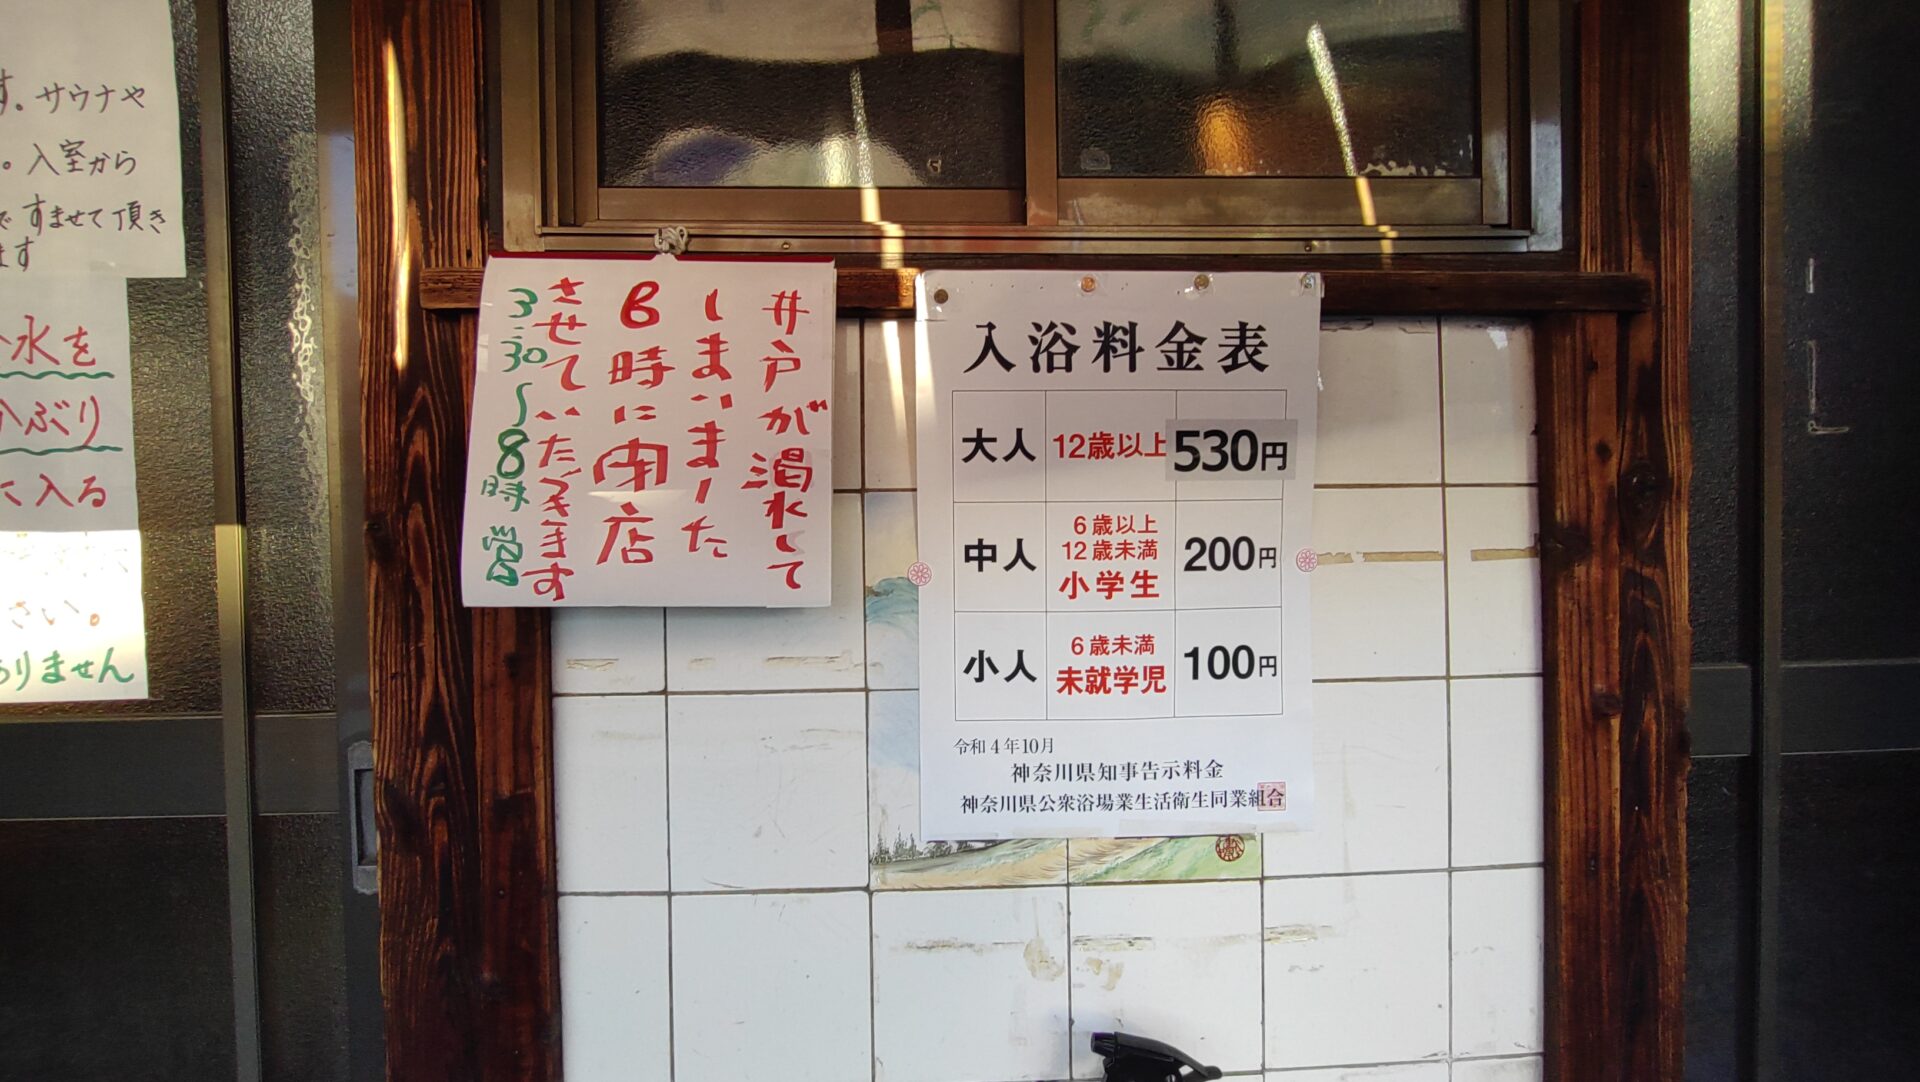 す。サウナや
。入室から
ですませて頂き
ます
水を
かぶり
に入る
さい。
ありません
井戸が渇水して
しまいました
8時に閉店
させていただきます
3:30〜8時営
入浴料金表
大人 12歳以上 530円
中人 6歳以上 12歳未満 小学生 200円
小人 6歳未満 未就学児 100円
令和4年10月
神奈川県知事告示料金
神奈川県公衆浴場業生活衛生同業組合